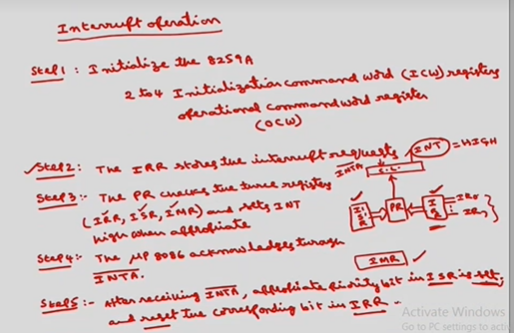 Interrupt operation
Step1 : Initialize the 8259A
2 to 4 Initialization command word (ICW) registers
operational command word register
(OCW)
Step2: The IRR stores the interrupt requests
Step3:- The PR checks the three registers
(IRR, ISR, IMR) and sets INT
high when appropriate
Step4:- The μP 8086 acknowledges through
INTA.
Step5:- After receiving INTA, appropriate priority bit in ISR is set
and reset the corresponding bit in IRR -
INT = HIGH
INTA
C.L.
ISR
PR
IRR
IR0
IR7
IMR
Activate Windows
Go to PC settings to acti